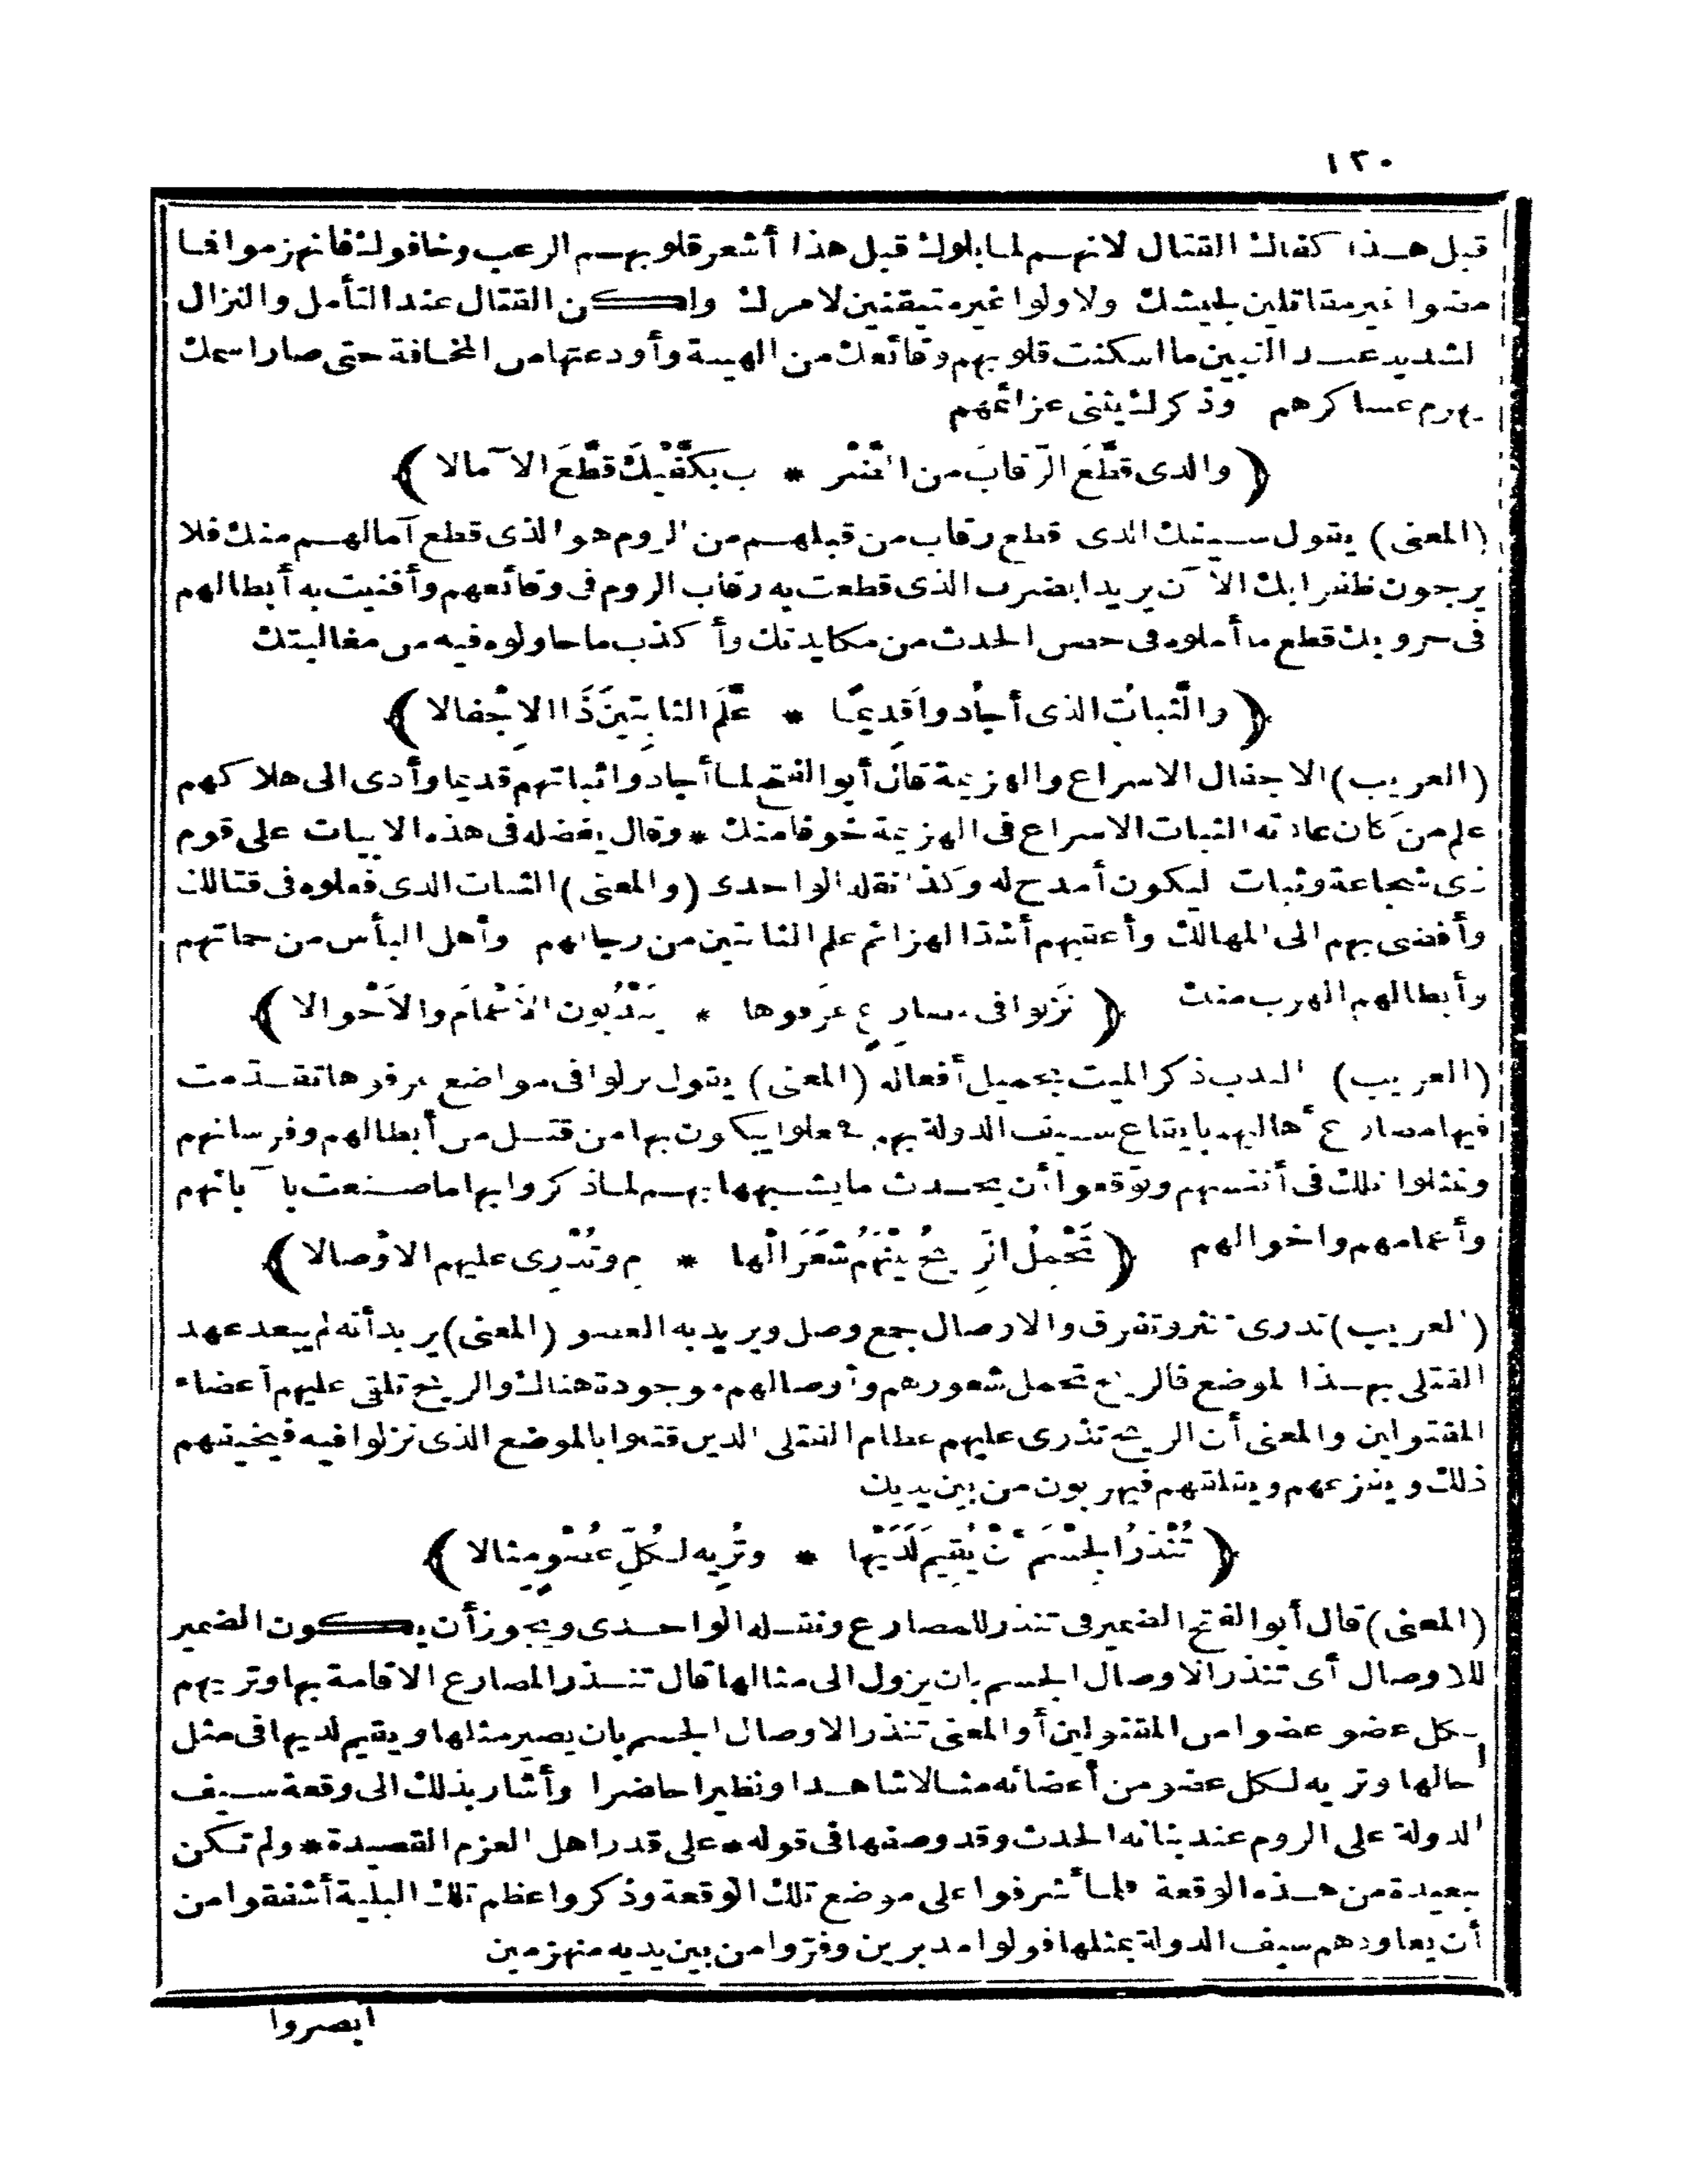 ١٣٠
قبل هذا كفاك القتال لانهم لما بلوك قبل هذا أشعر قلوبهم الرعب وخافوك فانهزموا فما
مضوا غير مقاتلين لجيشك ولا ولوا غير متيقنين لامرك ولكن القتال عند التأمل والنزال
لشديد عند التبين ما اسكنت قلوبهم وقائعك من الهيبة وأودعتها من المخافة حتى صار اسمك
يهزم عساكرهم وذكرك يثنى عزائمهم
﴿والذى قطَّعَ الرّقابَ من الضَّرْ * بِ بكَفَّيْكَ قطَّعَ الآمالا﴾
(المعنى) يقول سيفك الذى قطع رقاب من قبلهم من الروم هو الذى قطع آمالهم منك فلا
يرجون ظفرا بك الآن يريد الضرب الذى قطعت به رقاب الروم فى وقائعهم وأفنيت به أبطالهم
فى حروبك قطع ما أملوه فى حصن الحدث من مكايدتك وأكذب ما حاولوه فيه من مغالبتك
﴿والثَّباتُ الذى أجادوا قَديمًا * علَّمَ الثابِتِينَ ذَا الاِجْفالا﴾
(الغريب) الاجفال الاسراع والهزيمة قال أبو الفتح لما أجادوا ثباتهم قديما وأدى الى هلاكهم
علم من كان عادته الثبات الاسراع فى الهزيمة خوفا منك * وقال يفضله فى هذه الابيات على قوم
ذى شجاعة وثبات ليكون أمدح له وكذا نقله الواحدى (والمعنى) الثبات الذى فعلوه فى قتالك
وأفضى بهم الى المهالك وأعقبهم أشذ الهزائم علم الثابتين من رجالهم وأهل البأس من حماتهم
وأبطالهم الهرب منك ﴿نَزَلوا فى مصارِعٍ عَرَفوها * يَنْدُبُون الاَعْمامَ والاَخْوالا﴾
(الغريب) الندب ذكر الميت بجميل أفعاله (المعنى) يقول نزلوا فى مواضع عرفوها تقدّمت
فيها مصارع أهاليهم بايقاع سيف الدولة بهم فجعلوا يبكون بها من قتل من أبطالهم وفرسانهم
وتمثلوا ذلك فى أنفسهم وتوقعوا أن يحدث ما يشبهها بهم لما ذكروا بها ما صنعت بآبائهم
وأعمامهم واخوالهم ﴿تَحْمِلُ الرِّيحُ بَيْنَهُمْ شَعَرَ الْها * مِ وتُذْرِى عليهم الاَوْصالا﴾
(الغريب) تذرى تنثر وتفرق والاوصال جمع وصل ويريد به العضو (المعنى) يريد أنه لم يبعد عهد
القتلى بهذا الموضع فالريح تحمل شعورهم وأوصالهم موجودة هناك والريح تلقى عليهم أعضاء
المقتولين والمعنى أن الريح تذرى عليهم عظام القتلى الذين قتلوا بالموضع الذى نزلوا فيه فيخيفهم
ذلك ويفزعهم ويقلقهم فيهربون من بين يديك
﴿تُنْذِرُ الجِسْمَ أنْ يُقِيمَ لَدَيْها * وتُرِيهِ لكُلِّ عُضْوٍ مِثالا﴾
(المعنى) قال أبو الفتح الضمير فى تنذر للمصارع ونقله الواحدى ويجوز أن يكون الضمير
للاوصال أى تنذر الاوصال الجسم بان يزول الى مثالها قال تنذر المصارع الاقامة بها وتريهم
لكل عضو عضوا من المقتولين أو المعنى تنذر الاوصال الجسم بان يصير مثلها ويقيم لديها فى مثل
حالها وتريه لكل عضو من أعضائه مثالا شاهدا ونظيرا حاضرا وأشار بذلك الى وقعة سيف
الدولة على الروم عند بنائه الحدث وقد وصفها فى قوله * على قدر اهل العزم القصيدة * ولم تكن
بعيدة من هذه الوقعة فلما أشرفوا على موضع تلك الوقعة وذكروا عظم تلك البلية أشفقوا من
أن يعاودهم سيف الدولة بمثلها فولوا مدبرين وفرّوا من بين يديه منهزمين
ابصروا